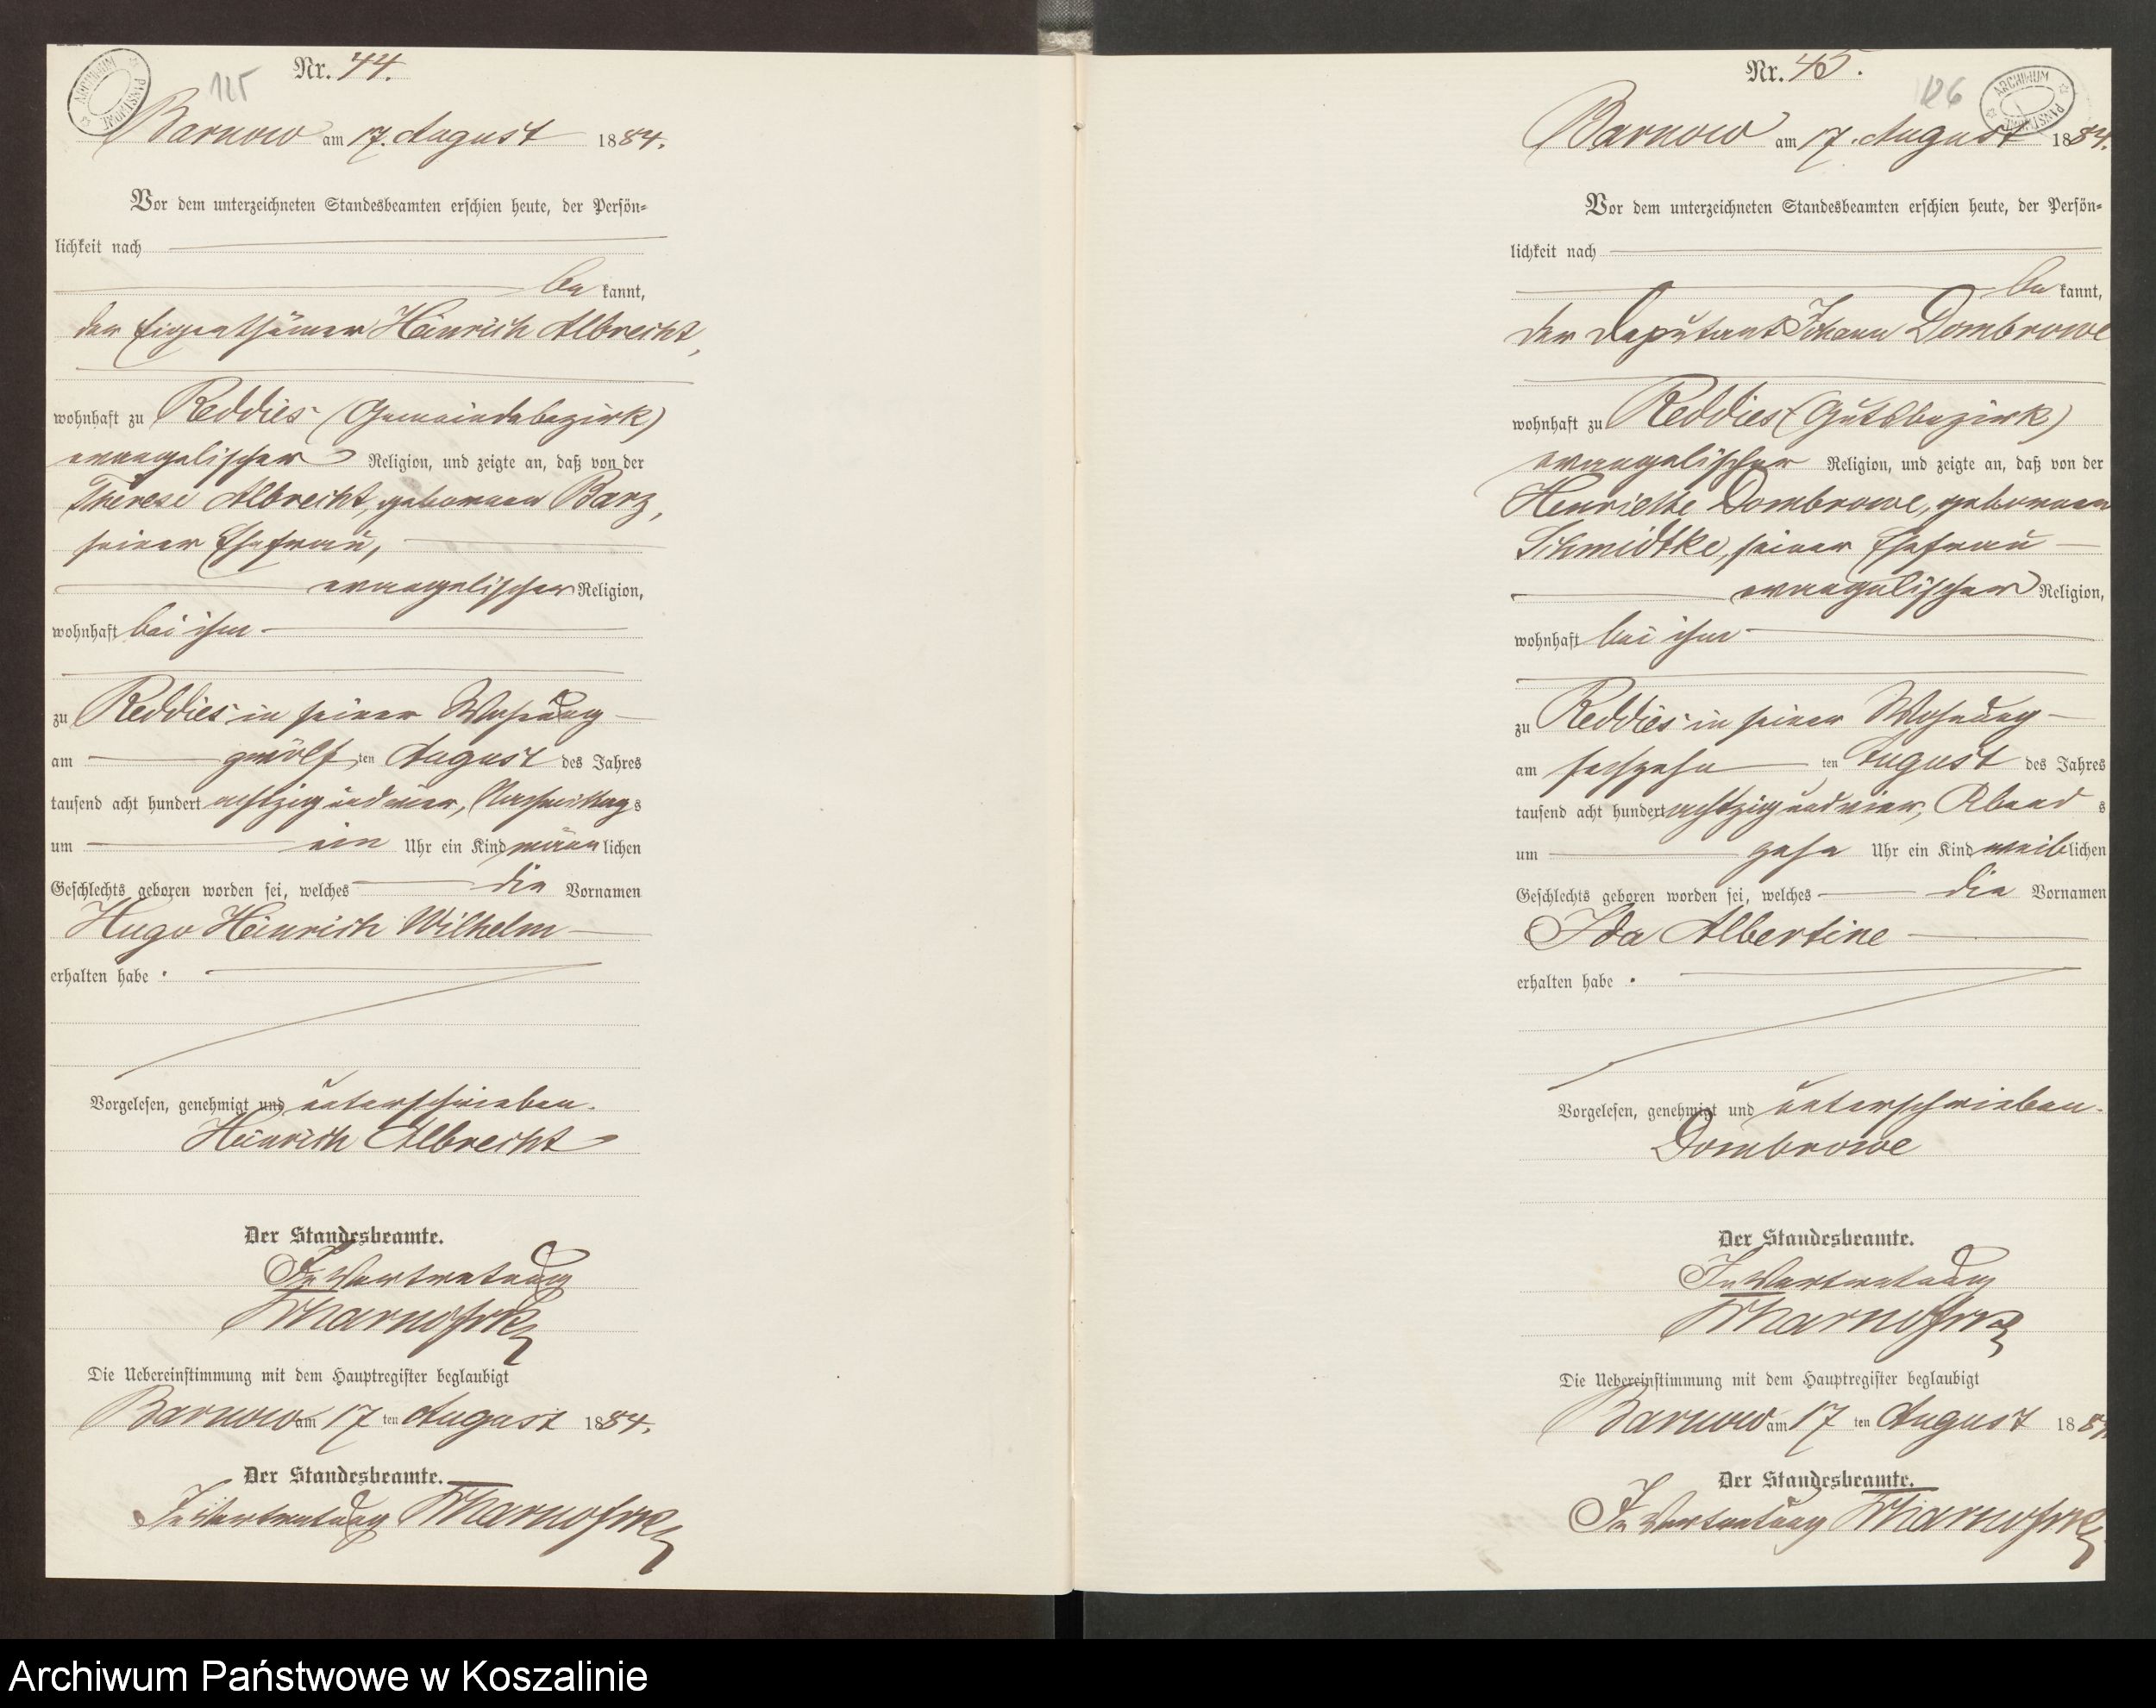 125
Nr. 44.
Barnow am 17. August 1884.
Vor dem unterzeichneten Standesbeamten erschien heute, der Persön=
lichkeit nach
be kannt,
der Eigenthümer Heinrich Albrecht,
wohnhaft zu Reddies (Gemeindebezirk)
evangelischer Religion, und zeigte an, daß von der
Therese Albrecht, geborenen Barz,
seiner Ehefrau,
evangelischer Religion,
wohnhaft bei ihm
zu Reddies in seiner Wohnung
am zwölf ten August des Jahres
tausend acht hundert achtzig und vier, Nachmittag s
um ein Uhr ein Kind männ lichen
Geschlechts geboren worden sei, welches die Vornamen
Hugo Heinrich Wilhelm
erhalten habe.
Vorgelesen, genehmigt und unterschrieben.
Heinrich Albrecht
Der Standesbeamte.
In Vertretung
Die Uebereinstimmung mit dem Hauptregister beglaubigt
Barnow am 17 ten August 1884.
Der Standesbeamte.
In Vertretung
Nr. 45.
126
ARCHIWUM PAŃSTWOWE
Barnow am 17. August 1884.
Vor dem unterzeichneten Standesbeamten erschien heute, der Persön=
lichkeit nach
be kannt,
der Deputant Johann Dombrowe
wohnhaft zu Reddies (Gutsbezirk)
evangelischer Religion, und zeigte an, daß von der
Henriette Dombrowe, geborenen
Schmidtke, seiner Ehefrau
evangelischer Religion,
wohnhaft bei ihm
zu Reddies in seiner Wohnung
am sechzehn ten August des Jahres
tausend acht hundert achtzig und vier, Abend s
um zehn Uhr ein Kind weib lichen
Geschlechts geboren worden sei, welches die Vornamen
Ida Albertine
erhalten habe.
Vorgelesen, genehmigt und unterschrieben.
Dombrowe
Der Standesbeamte.
In Vertretung
Die Uebereinstimmung mit dem Hauptregister beglaubigt
Barnow am 17 ten August 188
Der Standesbeamte.
In Vertretung
Archiwum Państwowe w Koszalinie